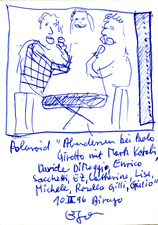 Polaroid "Abendessen bei Paolo
Girotto mit Mark Kostabi,
Davide DiMaggio, Enrico
Sacchetti, EZ, Catherine, Lisa,
Michele, Rosella Gilli, Giulio"
10.III 96